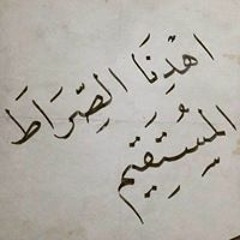 اهْدِنَا الصِّرَاطَ
المُسْتَقِيْم